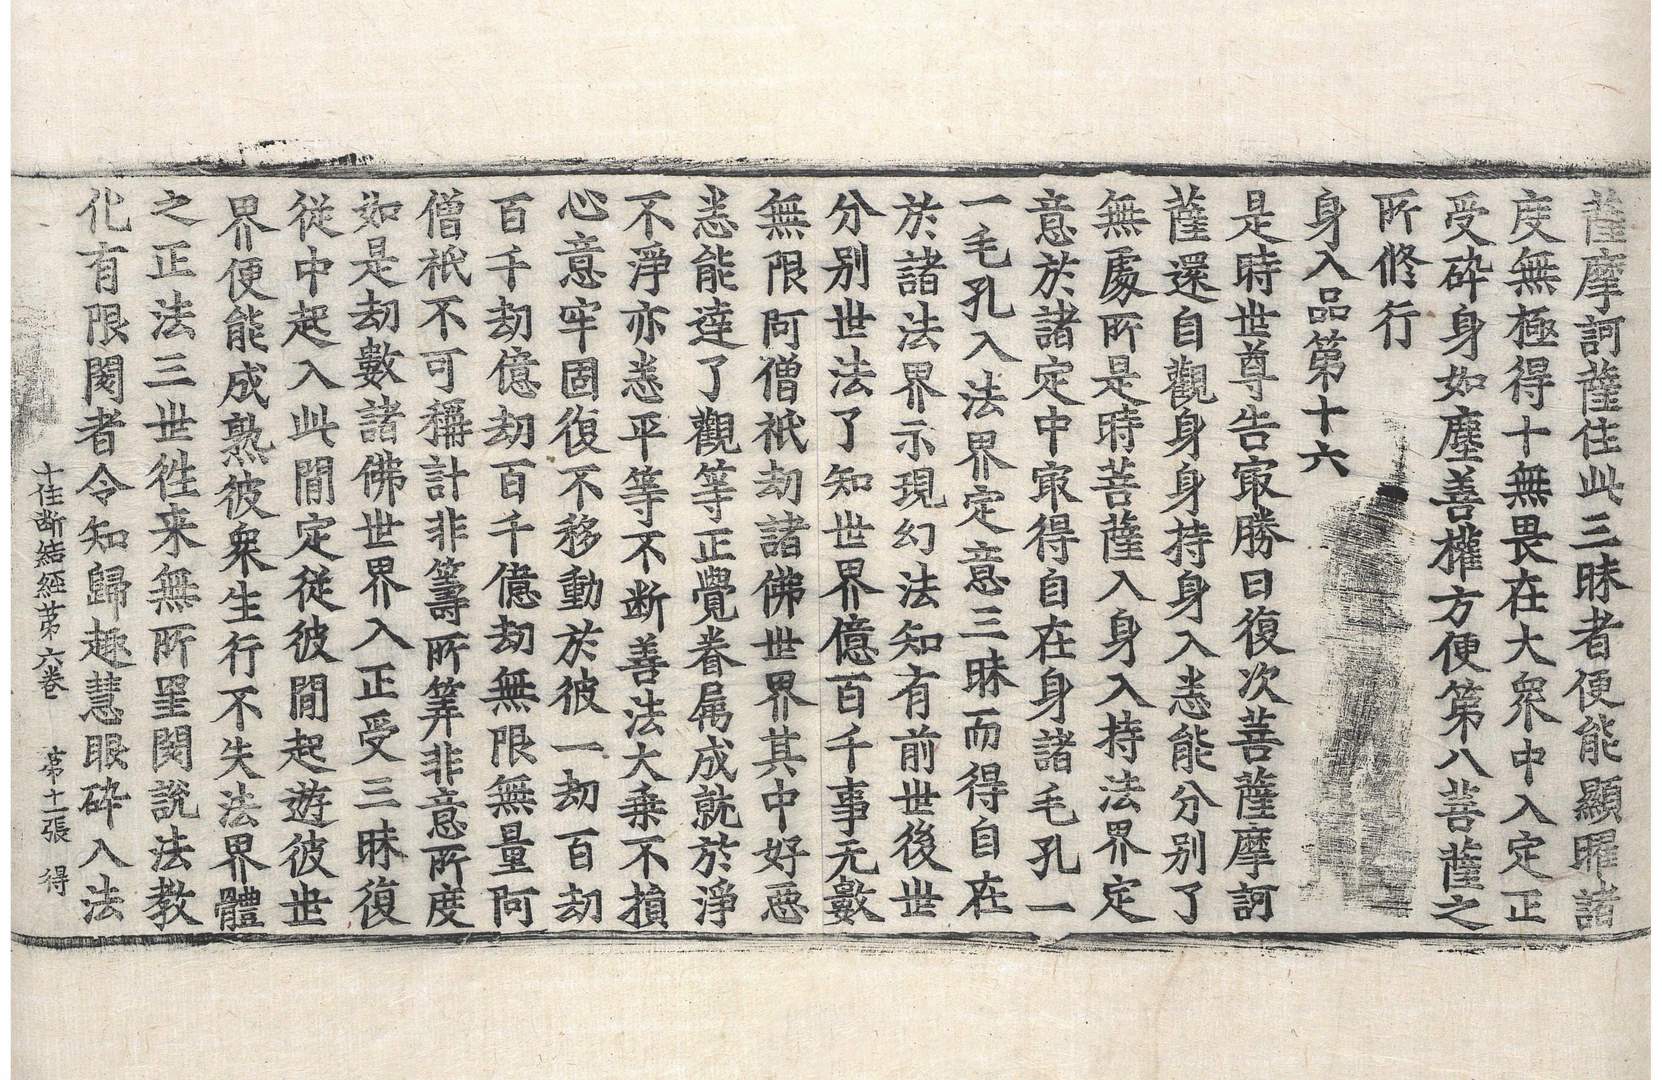 薩摩訶薩住此三昧者便能顯曜諸
度無極得十無畏在大衆中入定正
受碎身如塵善權方便第八菩薩之
所修行
身入品第十六
是時世尊告㝡勝曰復次菩薩摩訶
薩還自觀身身持身入悉能分別了
無處所是時菩薩入身入持法界定
意於諸定中㝡得自在身諸毛孔一
一毛孔入法界定意三昧而得自在
於諸法界示現幻法知有前世後世
分別世法了知世界億百千事无數
無限阿僧祇劫諸佛世界其中好惡
悉能達了觀等正覺眷属成就於淨
不淨亦悉平等不断善法大乗不損
心意牢固復不移動於彼一劫百劫
百千劫億劫百千億劫無限無量阿
僧祇不可稱計非籌所筭非意所度
如是劫數諸佛世界入正受三昧復
從中起入此間定從彼間起遊彼世
界便能成熟彼衆生行不失法界體
之正法三世徃来無所罣閡說法教
化有限閡者令知歸趣慧眼碎入法
十住断結經第六卷　第十二張　得